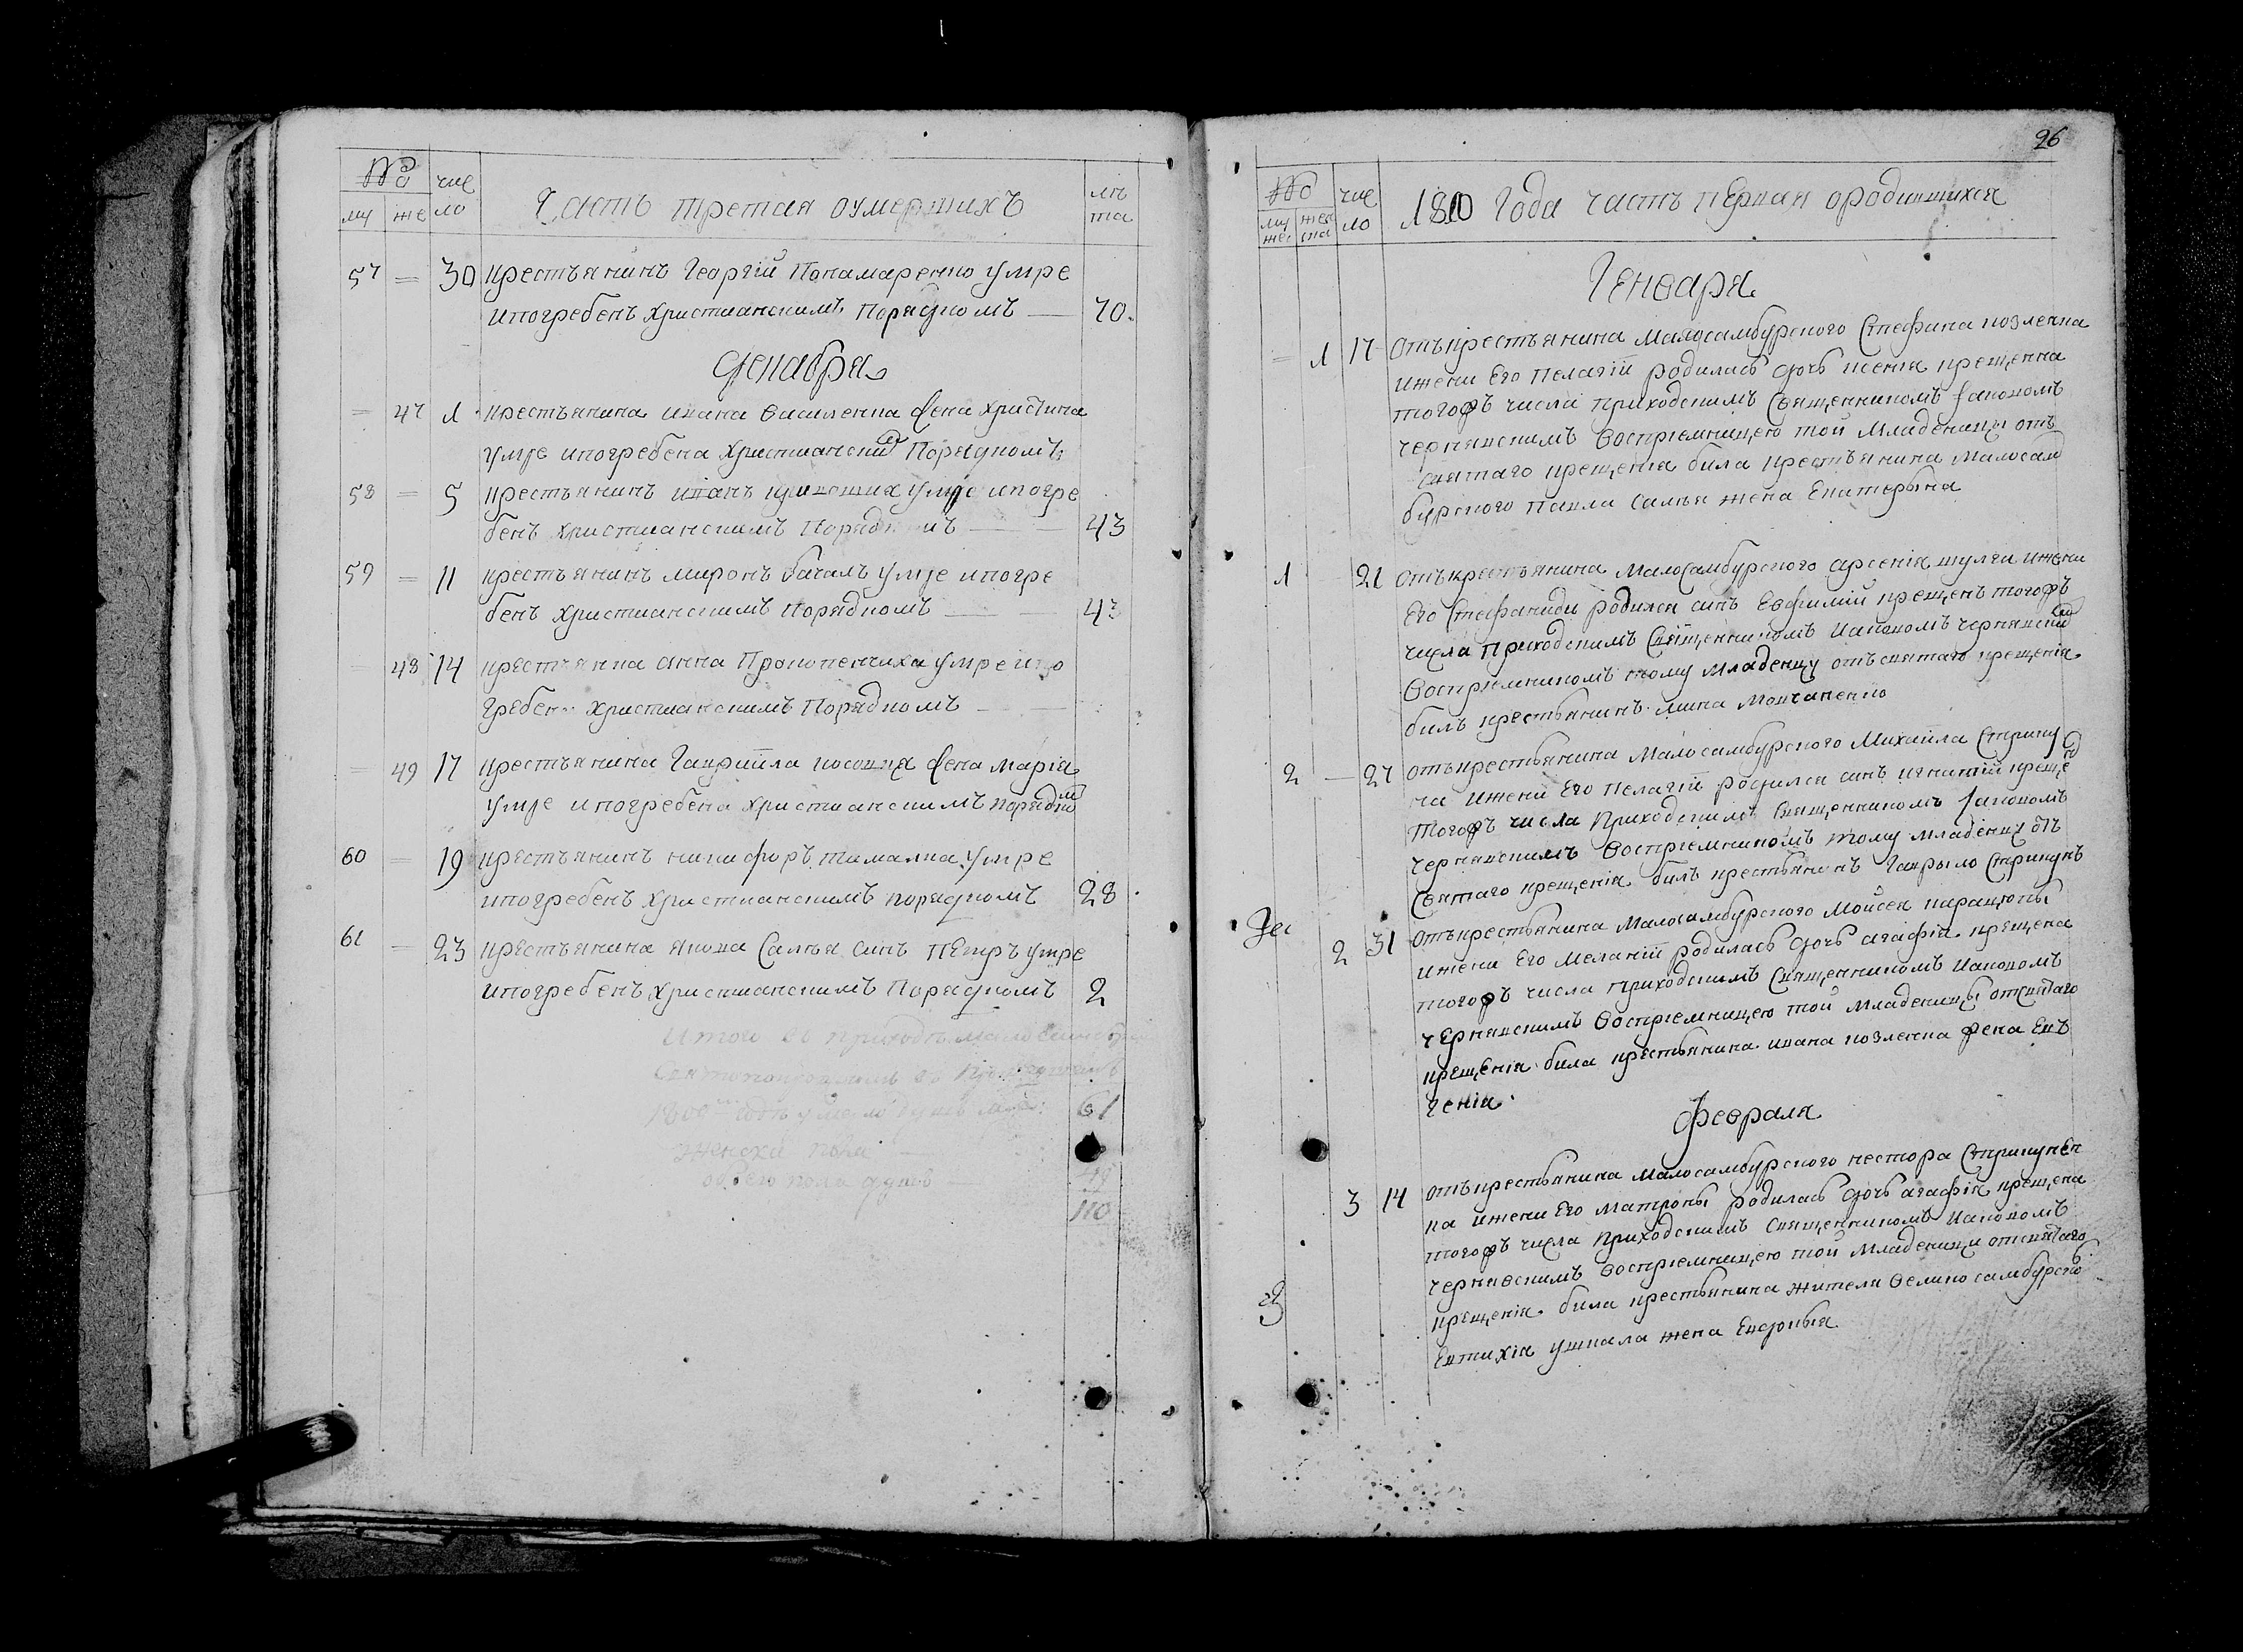 № чис ло Часть третая оумершихъ лѣ та
му же
57 = 30 крестьянинъ Георгій Понамаренко умре
ипогребенъ христианскимъ Порядкомъ — 70.
Декабря
= 47 1 крестьянина ивана василенка жена христина
умре ипогребена христиански Порядкомъ
58 = 5 крестьянинъ иванъ умре ипогре
бенъ христианскимъ Порядкомъ — 43
59 = 11 крестьянинъ миронъ бачалъ умре ипогре
бенъ христианскимъ Порядкомъ — 43
48 14 анна Прокопенчиха умре ипо
гребена христианскимъ Порядкомъ —
= 49 17 крестьянина Гавриила жена марія
умре ипогребена христианскимъ порядком
60 = 19 крестьянинъ никифоръ умре
ипогребенъ христианскимъ порядкомъ 28
61 = 23 крестьянина якова Салья синъ Петръ умре
ипогребенъ христианскимъ Порядкомъ 2
Итого въ приходѣ
61
женска пола — 49
обоего пола душъ
110
26
№ чис ло 1810 Года часть первая ородившихся
му жес жен ска
Генваря
= 1 17 Отъкрестьянина Малосамбурского Стефана козленка
ижени Его Пелагіи родилась дочь ксенія крещенна
тогожъ числа приходскимъ Священникомъ Іаковомъ
чернявскимъ Воспріемницею той Младеницы отъ
святаго крещенія била крестьянина Малосам
бурского Павла Салья жена Екатерына
1 21 отъкрестьянина Малосамбурского арсенія шулги ижени
Его Стефаниди родился синъ Евфимій крещенъ тогожъ
числа Приходскимъ Священникомъ Иаковомъ чернявским
Воспріемникомъ тому Младенцу отъсвятаго крещенія
билъ крестьянинъ мина Мовчаненко
2 — 27 отъкрестьянина Малосамбурского Михаила Стрику
на ижени Его Пелагіи родился синъ игнатій крещен
тогожъ числа Приходскимъ Священникомъ Іаковомъ
чернявскимъ Воспріемникомъ тому младенцу отъ
Святаго крещенія билъ крестьянинъ Гаврыло Стрикунъ
2 31 Отъкрестьянина Малосамбурского Мойсея
ижени Его Меланіи родилась дочь агафія крещена
тогожъ числа приходскимъ Священникомъ Иаковомъ
чернявскимъ Воспріемницею той Младеницы отсвятаго
крещенія била крестьянина ивана козленка жена Евъ
генія
Февраля
3 14 отъкрестьянина Малосамбурского нестора Стрикунен
ка ижени Его Матроны родилась дочь агафія крещена
тогожъ числа Приходскимъ Священникомъ Иаковомъ
чернявскимъ воспріемницею той младеници отсвятаго
крещенія била крестьянина жителя Великосамбурско
Евтихія ушкала жена Евдокия